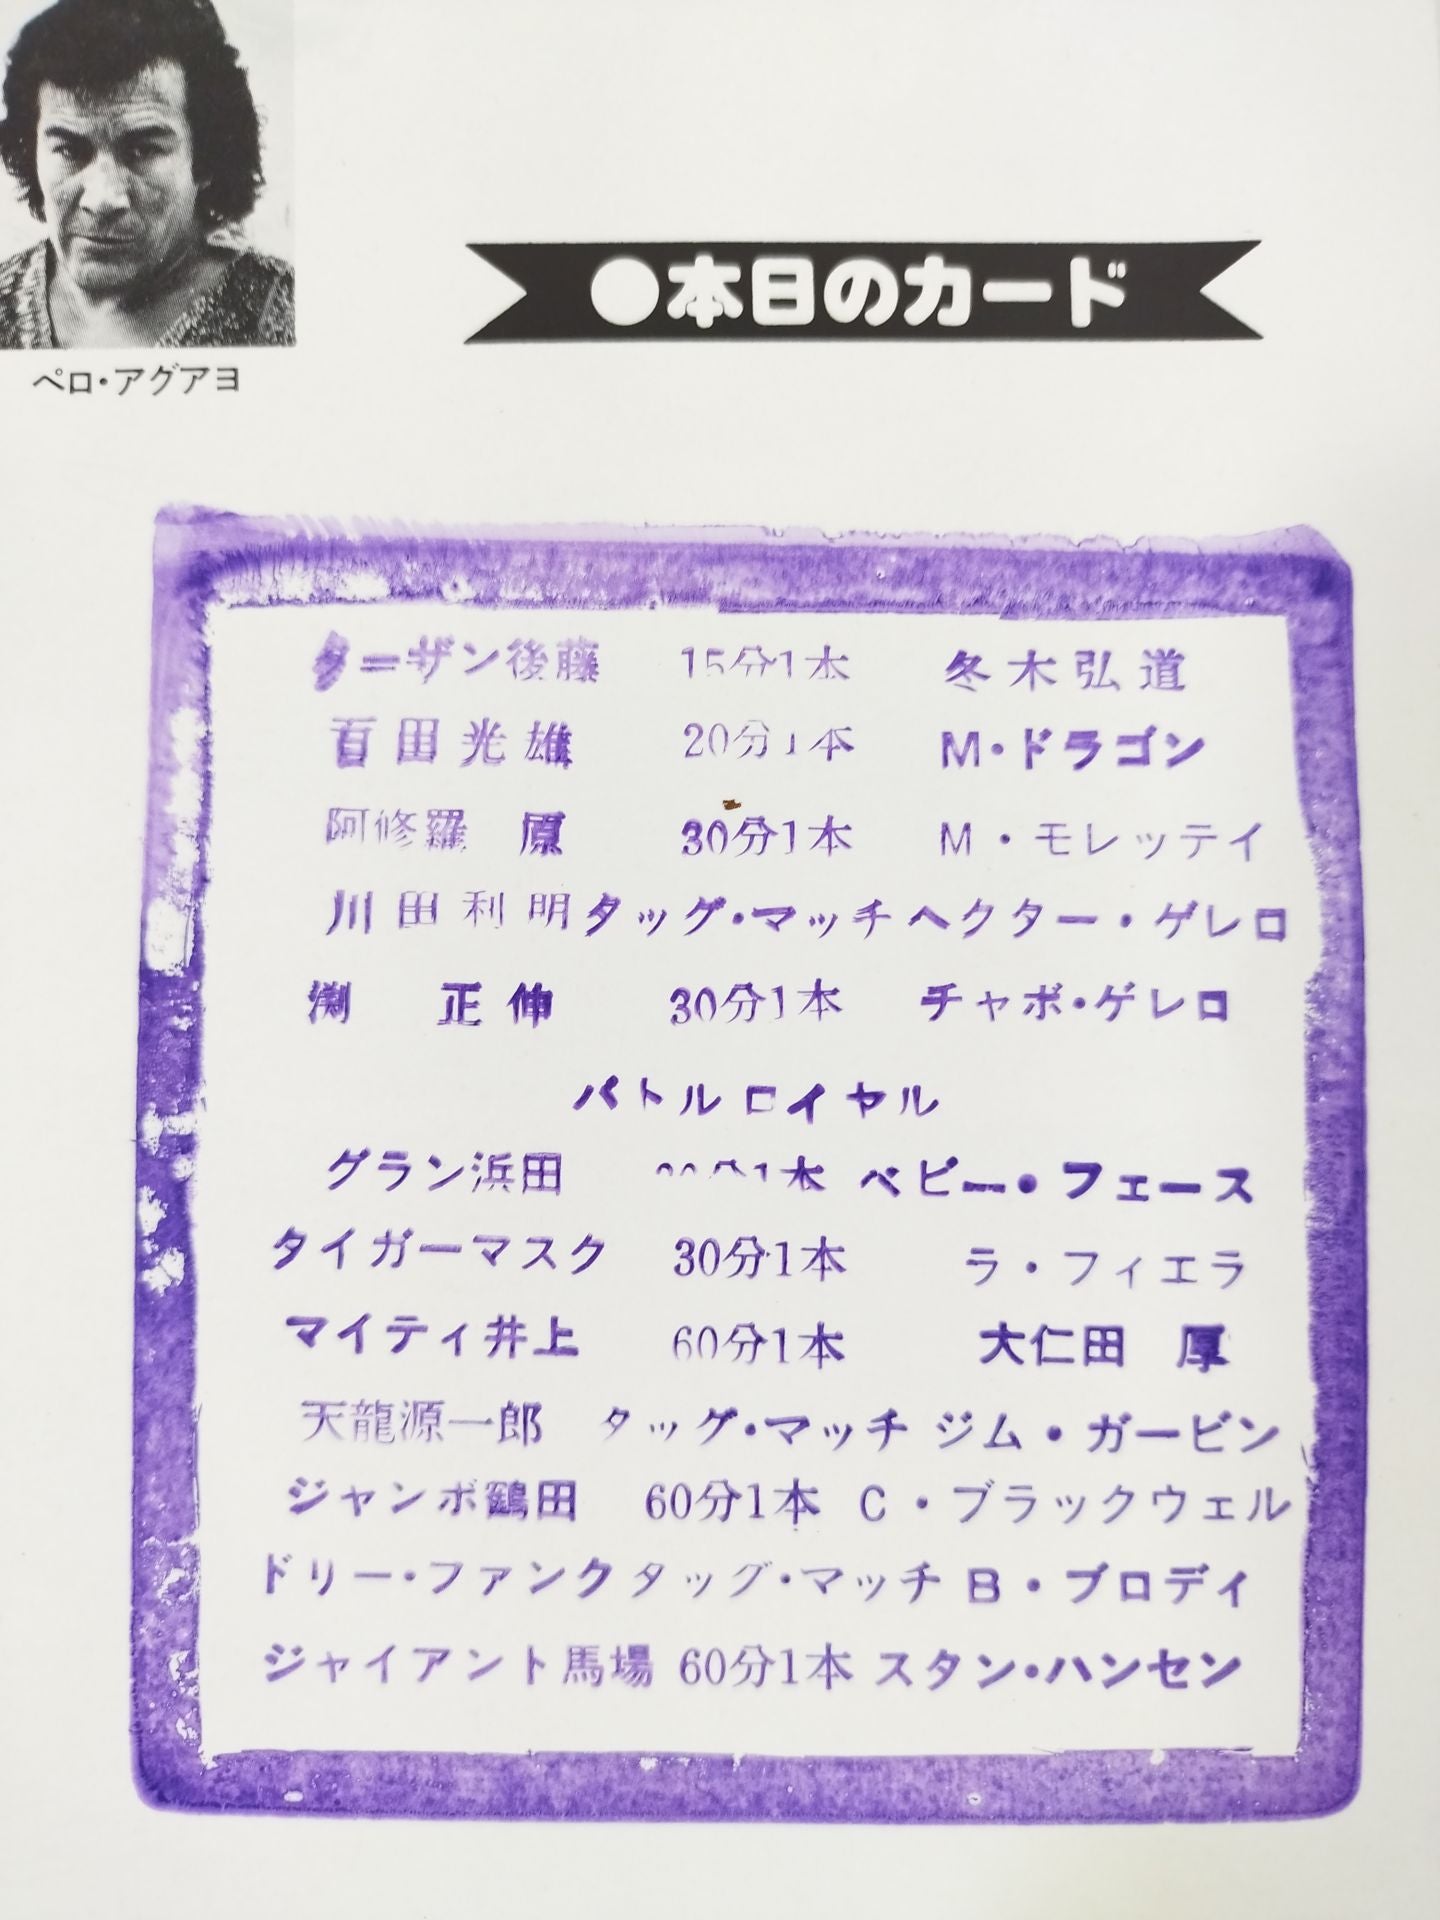 ●本日のカード
ペロ・アグアヨ
ターザン後藤 15分1本 冬木弘道
百田光雄 20分1本 M・ドラゴン
阿修羅 原 30分1本 M・モレッテイ
川田利明 タッグ・マッチ ヘクター・ゲレロ
渕 正伸 30分1本 チャボ・ゲレロ
バトルロイヤル
グラン浜田 分1本 ベビー・フェース
タイガーマスク 30分1本 ラ・フィエラ
マイティ井上 60分1本 大仁田 厚
天龍源一郎 タッグ・マッチ ジム・ガービン
ジャンボ鶴田 60分1本 C・ブラックウェル
ドリー・ファンク タッグ・マッチ B・ブロディ
ジャイアント馬場 60分1本 スタン・ハンセン